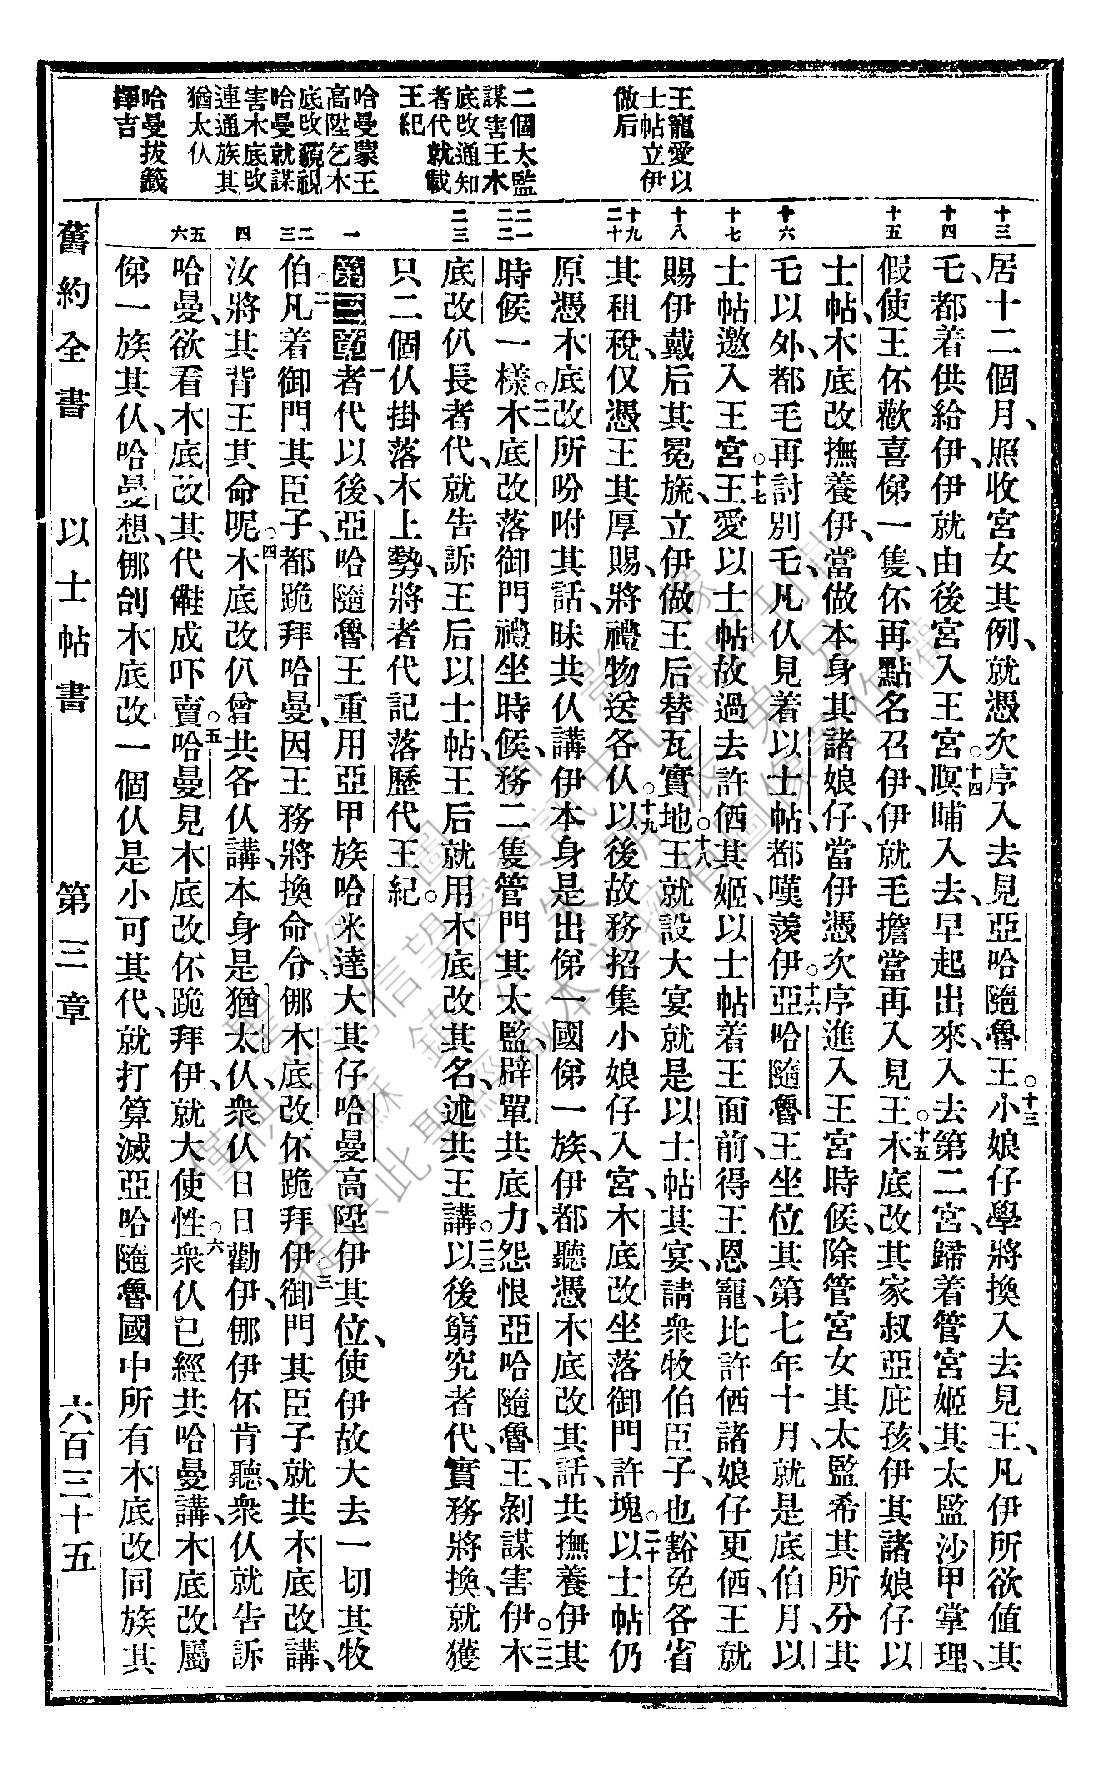 王寵愛以
士帖立伊
做后
二個太監
謀害王木
底改通知
者代就載
王紀
哈曼蒙王
高陞乞木
底改藐視
哈曼就謀
害木底改
連通族其
猶太仈
哈曼拔籤
擇吉
十三
十四
十五
十六
十七
十八
十九
二十
二一
二二
二三
一
二
三
四
五
六
居十二個月、照收宮女其例、就憑次序入去見亞哈隨魯王。十三小娘仔學將換入去見王、凡伊所欲值其
乇都着供給伊、伊就由後宮入王宮。十四暝晡入去、早起出來、入去第二宮、歸着管宮姬其太監沙甲掌理、
假使王伓歡喜俤一隻、伓再點名召伊、伊就毛擔當再入見王。十五木底改其家叔亞庇孩、伊其諸娘仔以
士帖、木底改撫養伊、當做本身其諸娘仔、當伊憑次序進入王宮時候、除管宮女其太監希其所分其
乇以外、都毛再討別乇、凡仈見着以士帖、都嘆羨伊。十六亞哈隨魯王坐位其第七年十月、就是底伯月、以
士帖邀入王宮。十七王愛以士帖故過去許儕其姬、以士帖着王面前得王恩寵、比許儕諸娘仔更儕、王就
賜伊戴后其冕旒、立伊做王后替瓦實地。十八王就設大宴、就是以士帖其宴、請衆牧伯臣子、也豁免各省
其租稅、仅憑王其厚賜、將禮物送各仈。十九以後故務招集小娘仔入宮、木底改坐落御門許塊。二十以士帖仍
原憑木底改所吩咐其話、昧共仈講伊本身是出俤一國俤一族、伊都聽憑木底改其話、共撫養伊其
時候一樣。二一木底改落御門禮坐時候、務二隻管門其太監、辟單共底力、怨恨亞哈隨魯王、剝謀害伊。二二木
底改仈長者代、就告訴王后以士帖、王后就用木底改其名、述共王講。二三以後窮究者代、實務將換、就獲
只二個仈掛落木上勢、將者代記落歷代王紀。
第三章 一者代以後、亞哈隨魯王重用亞甲族哈米達大其仔哈曼、高陞伊其位、使伊故大去一切其牧
伯。二凡着御門其臣子、都跪拜哈曼、因王務將換命令、㑚木底改伓跪拜伊。三御門其臣子就共木底改講、
汝將其背王其命呢。四木底改仈曾共各仈講、本身是猶太仈、衆仈日日勸伊、㑚伊伓肯聽、衆仈就告訴
哈曼、欲看木底改其代儺成吓賣。五哈曼見木底改伓跪拜伊、就大使性。六衆仈已經共哈曼講、木底改屬
俤一族其仈、哈曼想、㑚刣木底改一個仈是小可其代、就打算滅亞哈隨魯國中所有木底改同族其
舊約全書 以士帖書 第三章 六百三十五